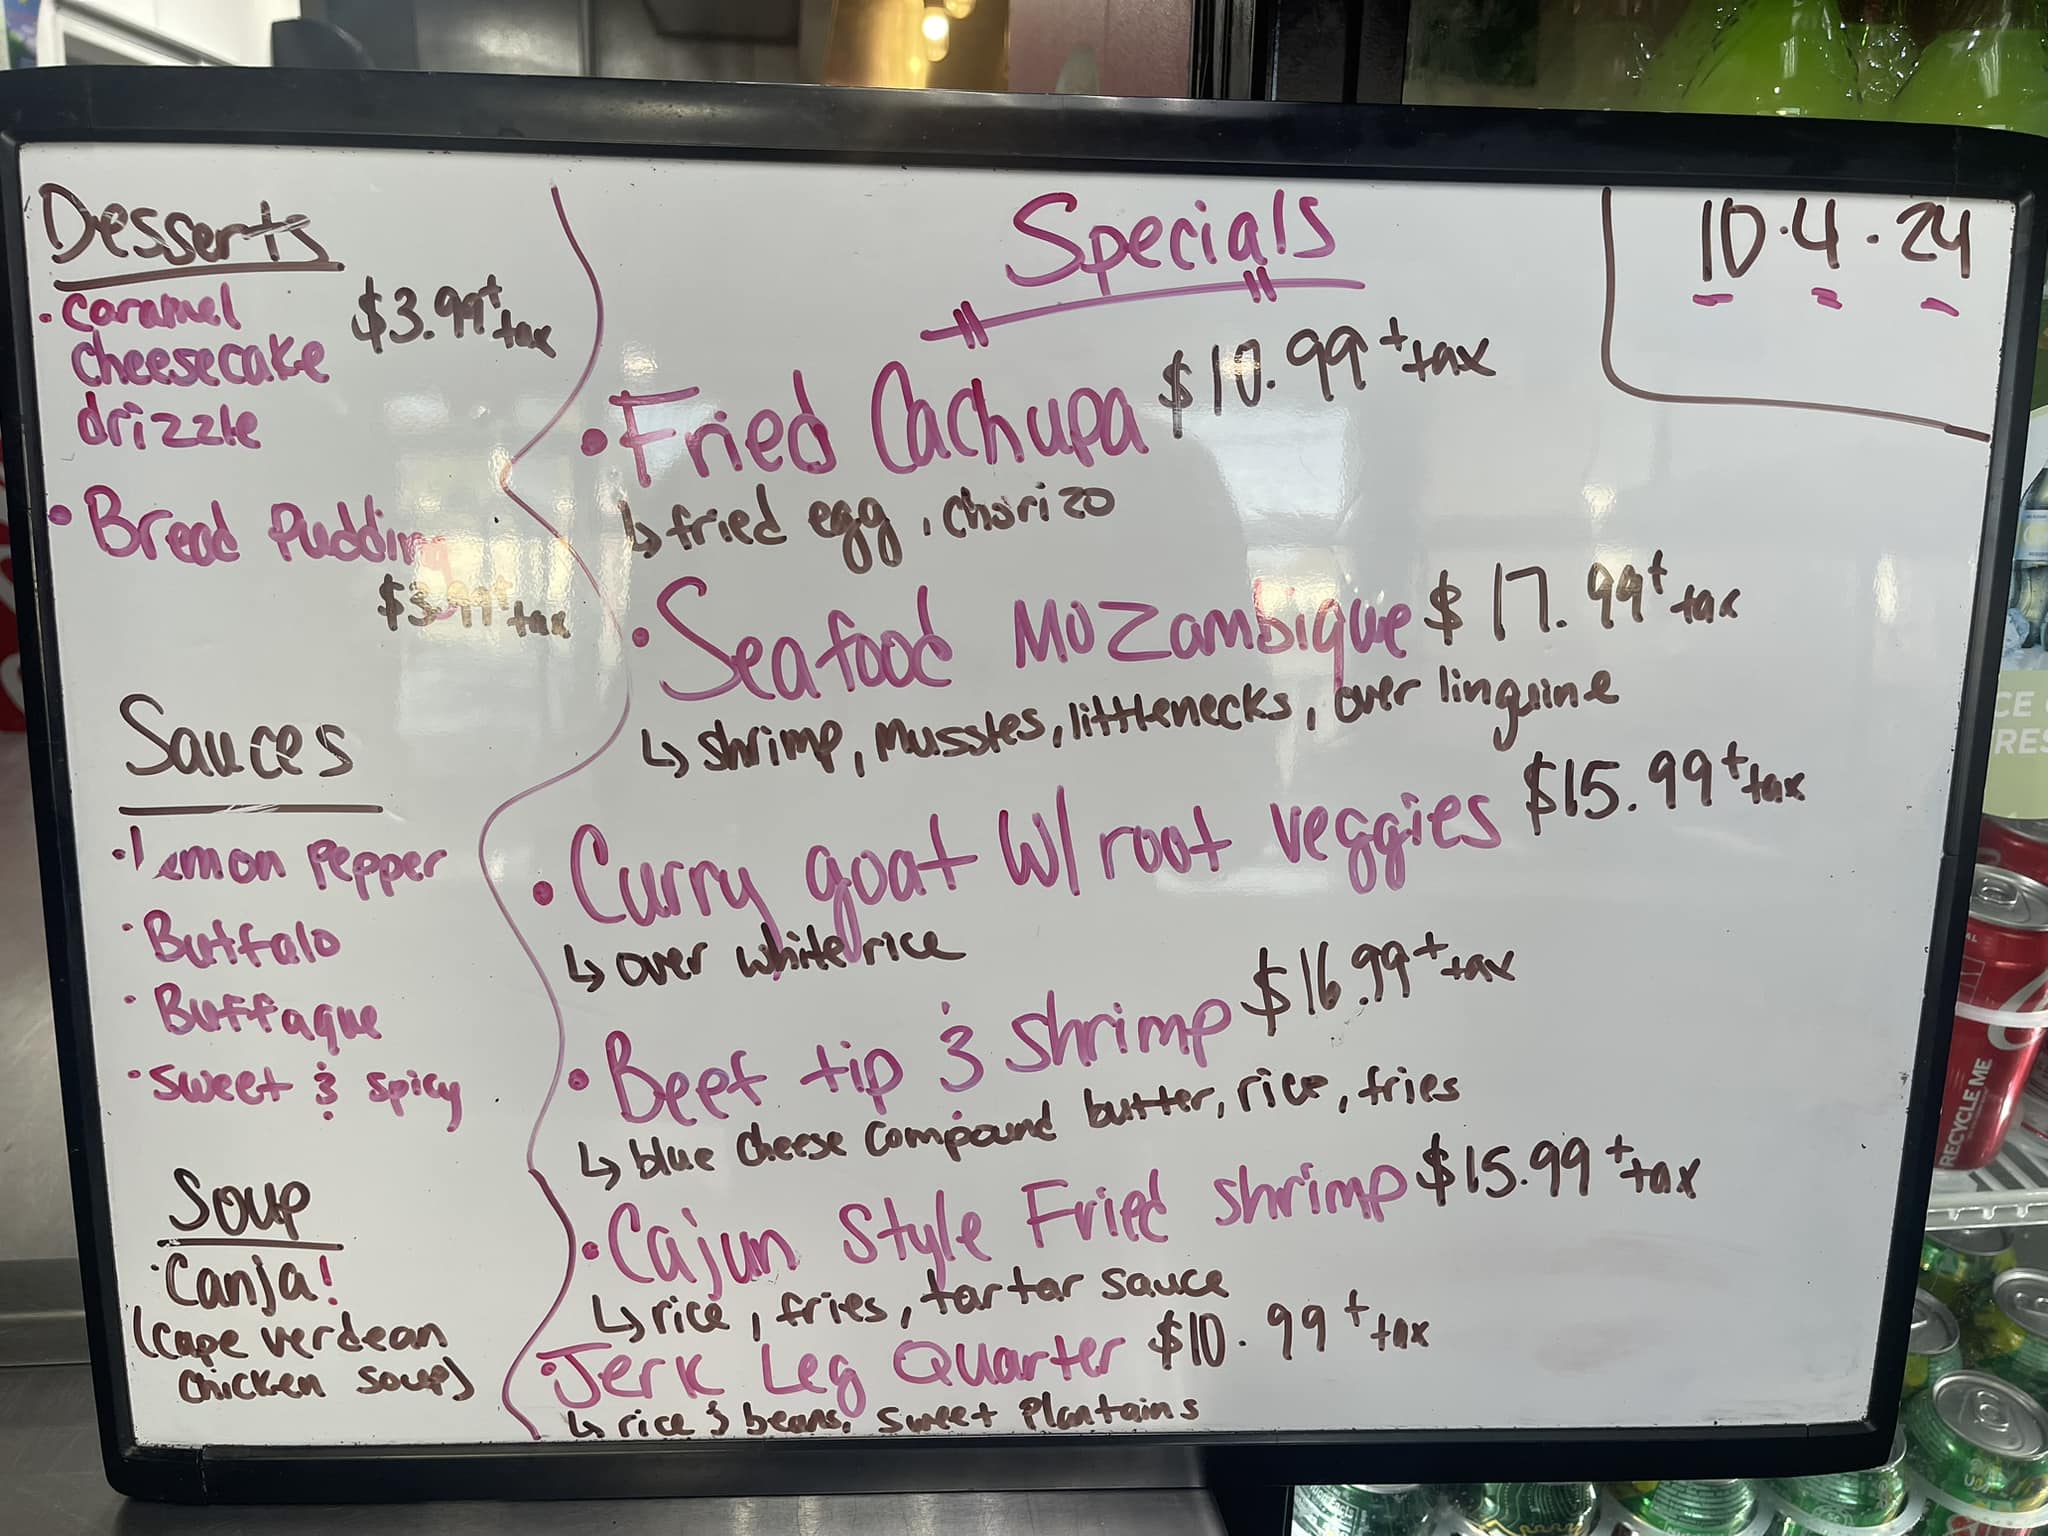 Desserts
• Caramel
cheesecake
drizzle
$3.99 + tax
• Bread Pudding
$3.99 + tax
Sauces
• Lemon Pepper
• Buffalo
• Buffaque
• Sweet & Spicy
Soup
• Canja!
(Cape verdean
chicken soup)
Specials
10.4.24
• Fried Cachupa $10.99 + tax
↳ fried egg, chorizo
• Seafood Mozambique $17.99 + tax
↳ shrimp, mussles, littlenecks, over linguine
• Curry goat w/ root veggies $15.99 + tax
↳ over white rice
• Beef tip & shrimp $16.99 + tax
↳ blue cheese compound butter, rice, fries
• Cajun Style Fried shrimp $15.99 + tax
↳ rice, fries, tartar sauce
• Jerk Leg Quarter $10.99 + tax
↳ rice & beans, sweet plantains
RECYCLE ME